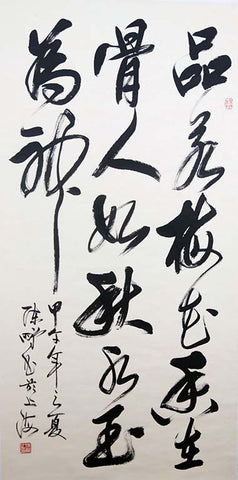 品若梅花香在
骨人如秋水玉
為神
甲午年之夏
陈書於上海